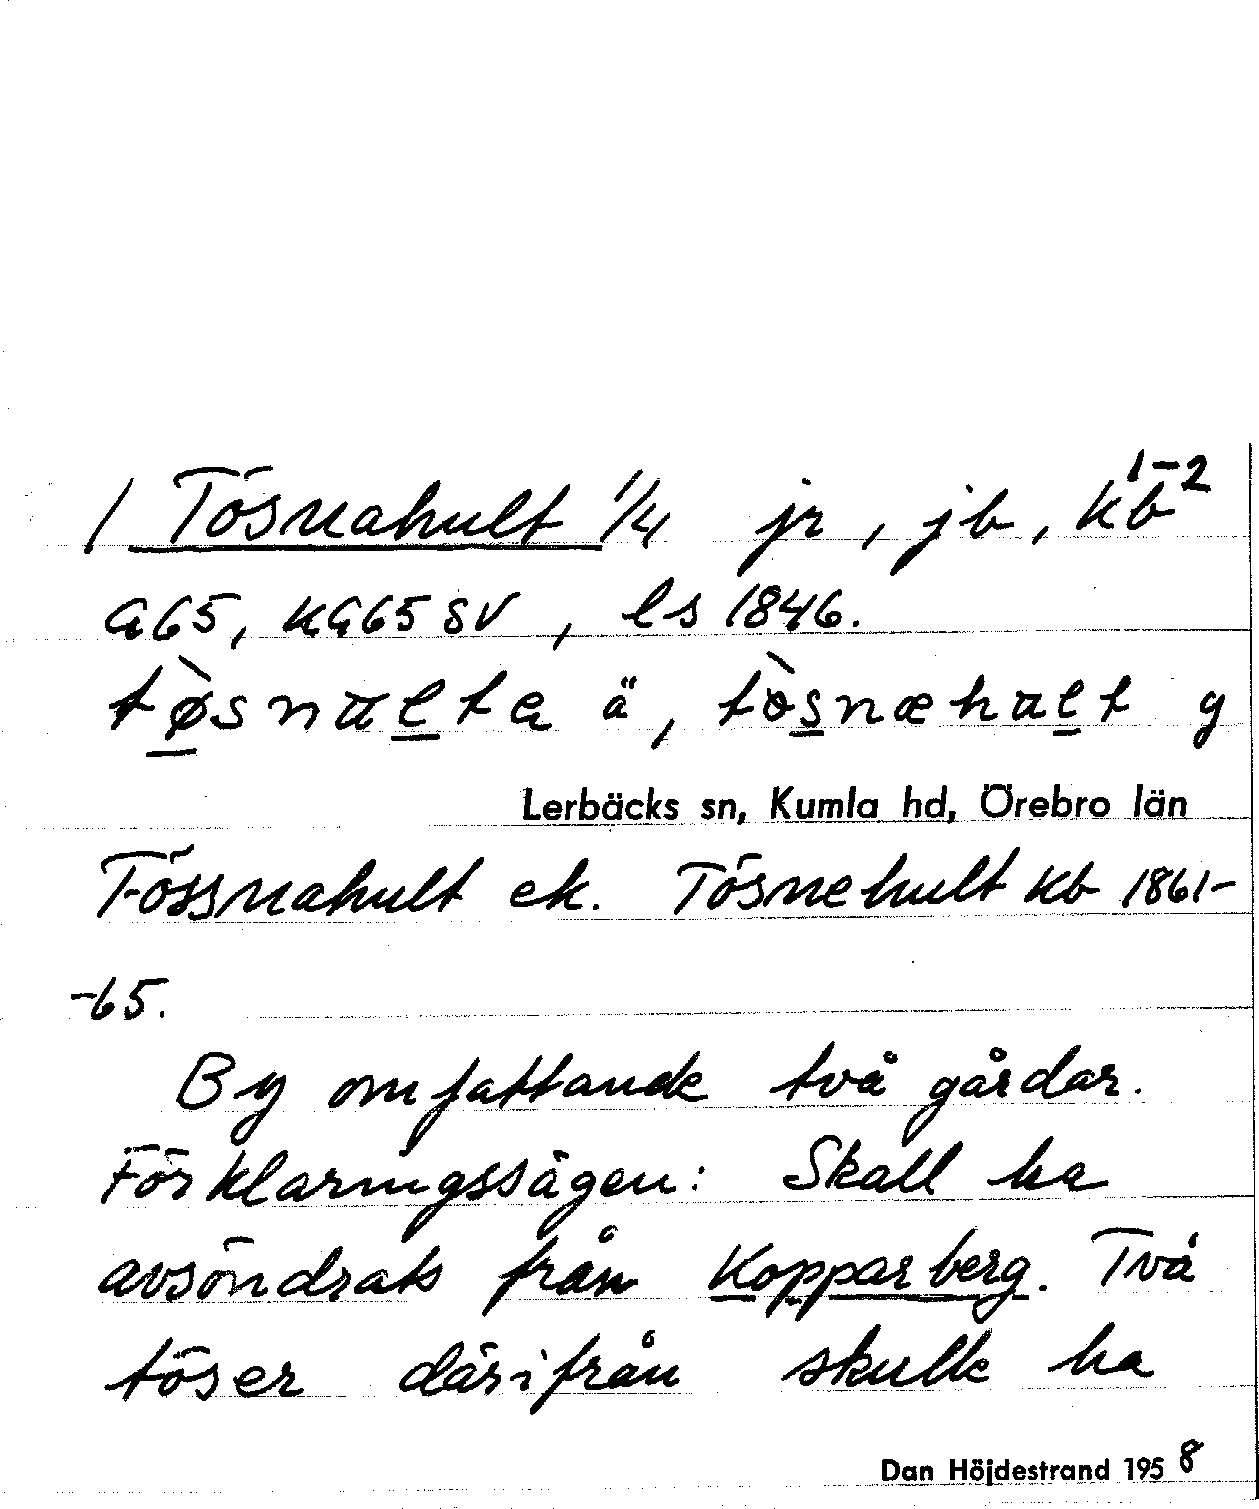 / Tösnahult 1/4 jr, jb, kb 1-2
G65, KG65 SV, ls 1846.
tø̀snalta ä, tòsnæhalt y
Lerbäcks sn, Kumla hd, Örebro län
Tössnahult ek. Tösnehult kb 1861-
-65.
By omfattande två gårdar.
Förklaringssägen: Skall ha
avsöndrats från Kopparberg. Två
töser därifrån skulle ha
Dan Höjdestrand 1958